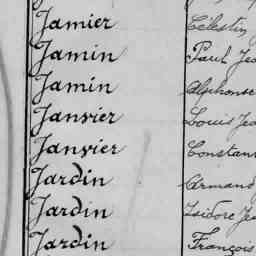 Jamier Célestin
Jamin Paul Je
Jamin Alphonse
Janvier Louis Je
Janvier Constan
Jardin Armand
Jardin Isidore Je
Jardin François